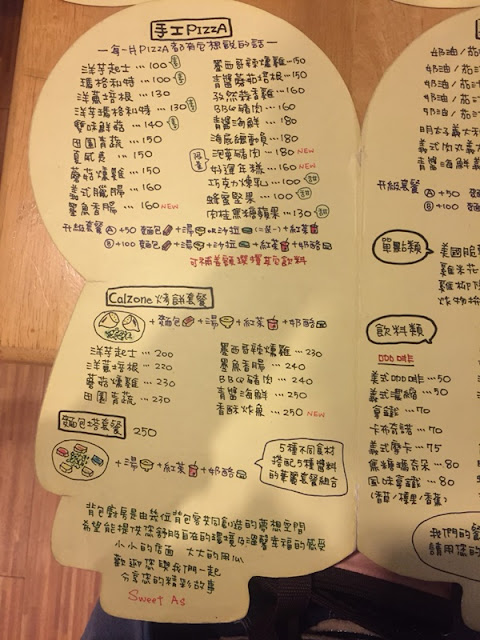 手工PIZZA
每一片PIZZA都有包想說的話
洋芋起士 … 100
瑪格和特 … 100
洋蔥培根 … 130
洋芋瑪格和特 … 130
雙味鮮菇 … 140
田園青蔬 … 150
夏威夷 … 150
蘑菇燻雞 … 150
義式臘腸 … 160
墨魚香腸 … 160 NEW
墨西哥辣燻雞 … 150
青醬蘑菇培根 … 150
孜然蒜香雞 … 160
BBQ豬肉 … 160
青醬海鮮 … 180
海底總動員 … 180
泡菜豬肉 … 180 NEW
好運年糕 … 160 NEW
巧克力煉乳 … 100 甜
蜂蜜堅果 … 100 甜
肉桂焦糖蘋果 … 130 甜
升級套餐 Ⓐ +50 麵包+湯 or 沙拉(二選一)+紅茶
Ⓑ +100 麵包+湯+沙拉+紅茶+奶酪
可補差額選擇其他飲料
Calzone 烤餅套餐
+麵包+湯+紅茶+奶酪
洋芋起士 … 200
洋蔥培根 … 220
蘑菇燻雞 … 230
田園青蔬 … 230
墨西哥辣燻雞 … 230
墨魚香腸 … 240
BBQ豬肉 … 240
青醬海鮮 … 250
香酥炸魚 … 250 NEW
麵包塔套餐 250
+湯+紅茶+奶酪
5種不同食材
搭配5種醬料
的華麗套餐組合
背包廚房是由幾位背包客共同創造的夢想空間
希望能提供您舒服自在的環境及溫馨幸福的感受
小小的店面 大大的用心
歡迎您跟我們一起
分享您的精彩故事
Sweet As
奶油/茄汁
奶油/茄
奶油/茄
奶油/茄
明太子義大利
義式肉丸義大
青醬海鮮義
升級套餐
Ⓐ +50
Ⓑ +100
單點類
美國脆
雞米花
雞柳
炸物拚
飲料類
DDD咖啡
美式DDD咖啡 … 50
義式濃縮 … 50
拿鐵 … 70
卡布奇諾 … 70
義式摩卡 … 75
焦糖瑪奇朵 … 80
風味拿鐵 … 80
(香草/榛果/香蕉)
我們的餐
請用您的